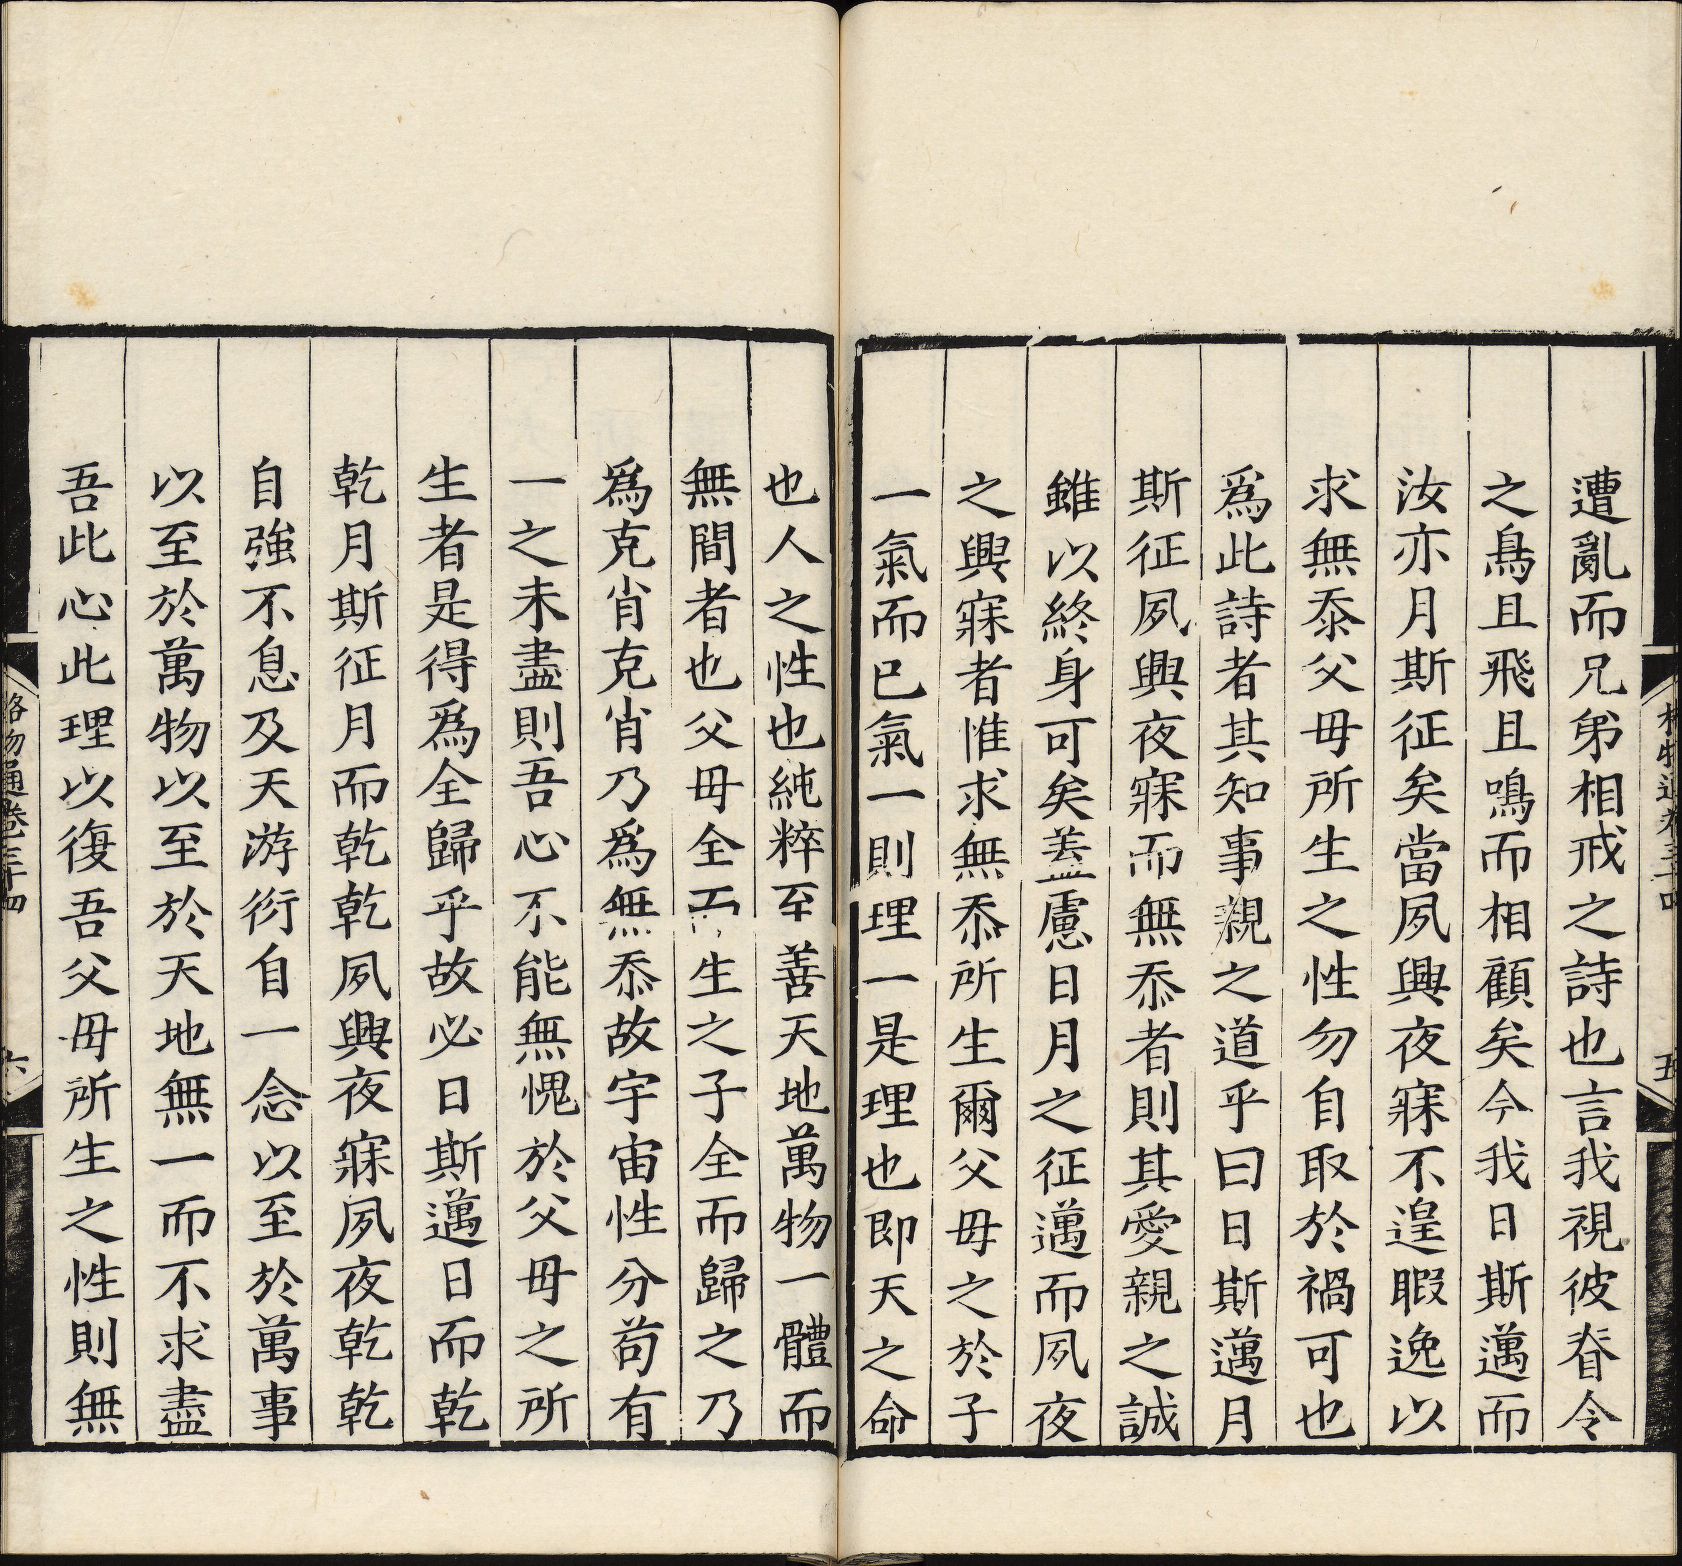 遭亂而兄弟相戒之詩也言我視彼脊令
之鳥且飛且鳴而相顧矣今我日斯邁而
汝亦月斯征矣當夙興夜寐不遑暇逸以
求無忝父母所生之性勿自取於禍可也
爲此詩者其知事親之道乎曰日斯邁月
斯征夙興夜寐而無忝者則其愛親之誠
雖以終身可矣盖慮日月之征邁而夙夜
之興寐者惟求無忝所生爾父母之於子
一氣而已氣一則理一是理也即天之命
也人之性也純粹至善天地萬物一體而
無間者也父母全而生之子全而歸之乃
爲克肖克肖乃爲無忝故宇宙性分苟有
一之未盡則吾心不能無愧於父母之所
生者是得爲全歸乎故必日斯邁日而乾
乾月斯征月而乾乾夙興夜寐夙夜乾乾
自強不息及天游衍自一念以至於萬事
以至於萬物以至於天地無一而不求盡
吾此心此理以復吾父母所生之性則無
格物通卷三十四
五
格物通卷三十四
六